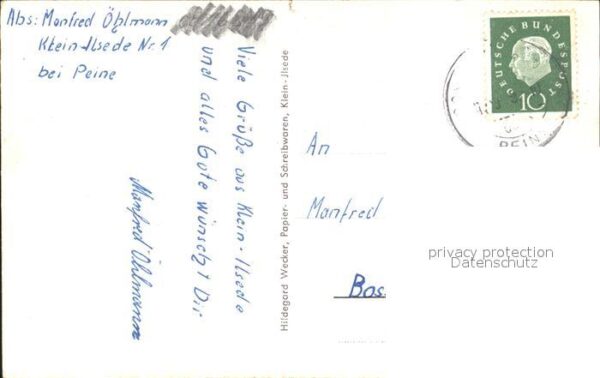 Abs: Manfred Öhlmann
Klein-Ilsede Nr. 1
bei Peine
Viele Grüße aus Klein-Ilsede
und alles Gute wünscht Dir
Manfred Öhlmann
Hildegard Wecker, Papier- und Schreibwaren, Klein-Ilsede
DEUTSCHE BUNDESPOST
10
PEIN
An
Manfred
Bos
privacy protection
Datenschutz